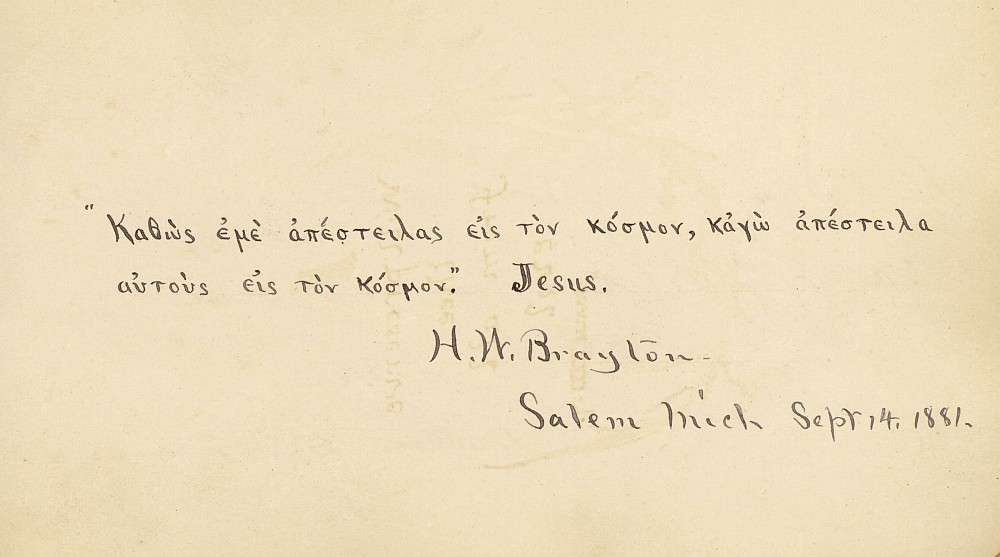 "Καθὼς ἐμὲ ἀπέστειλας εἰς τὸν κόσμον, κἀγὼ ἀπέστειλα
αὐτοὺς εἰς τὸν κόσμον." Jesus.
H. W. Brayton
Salem Mich Sept 14. 1881.